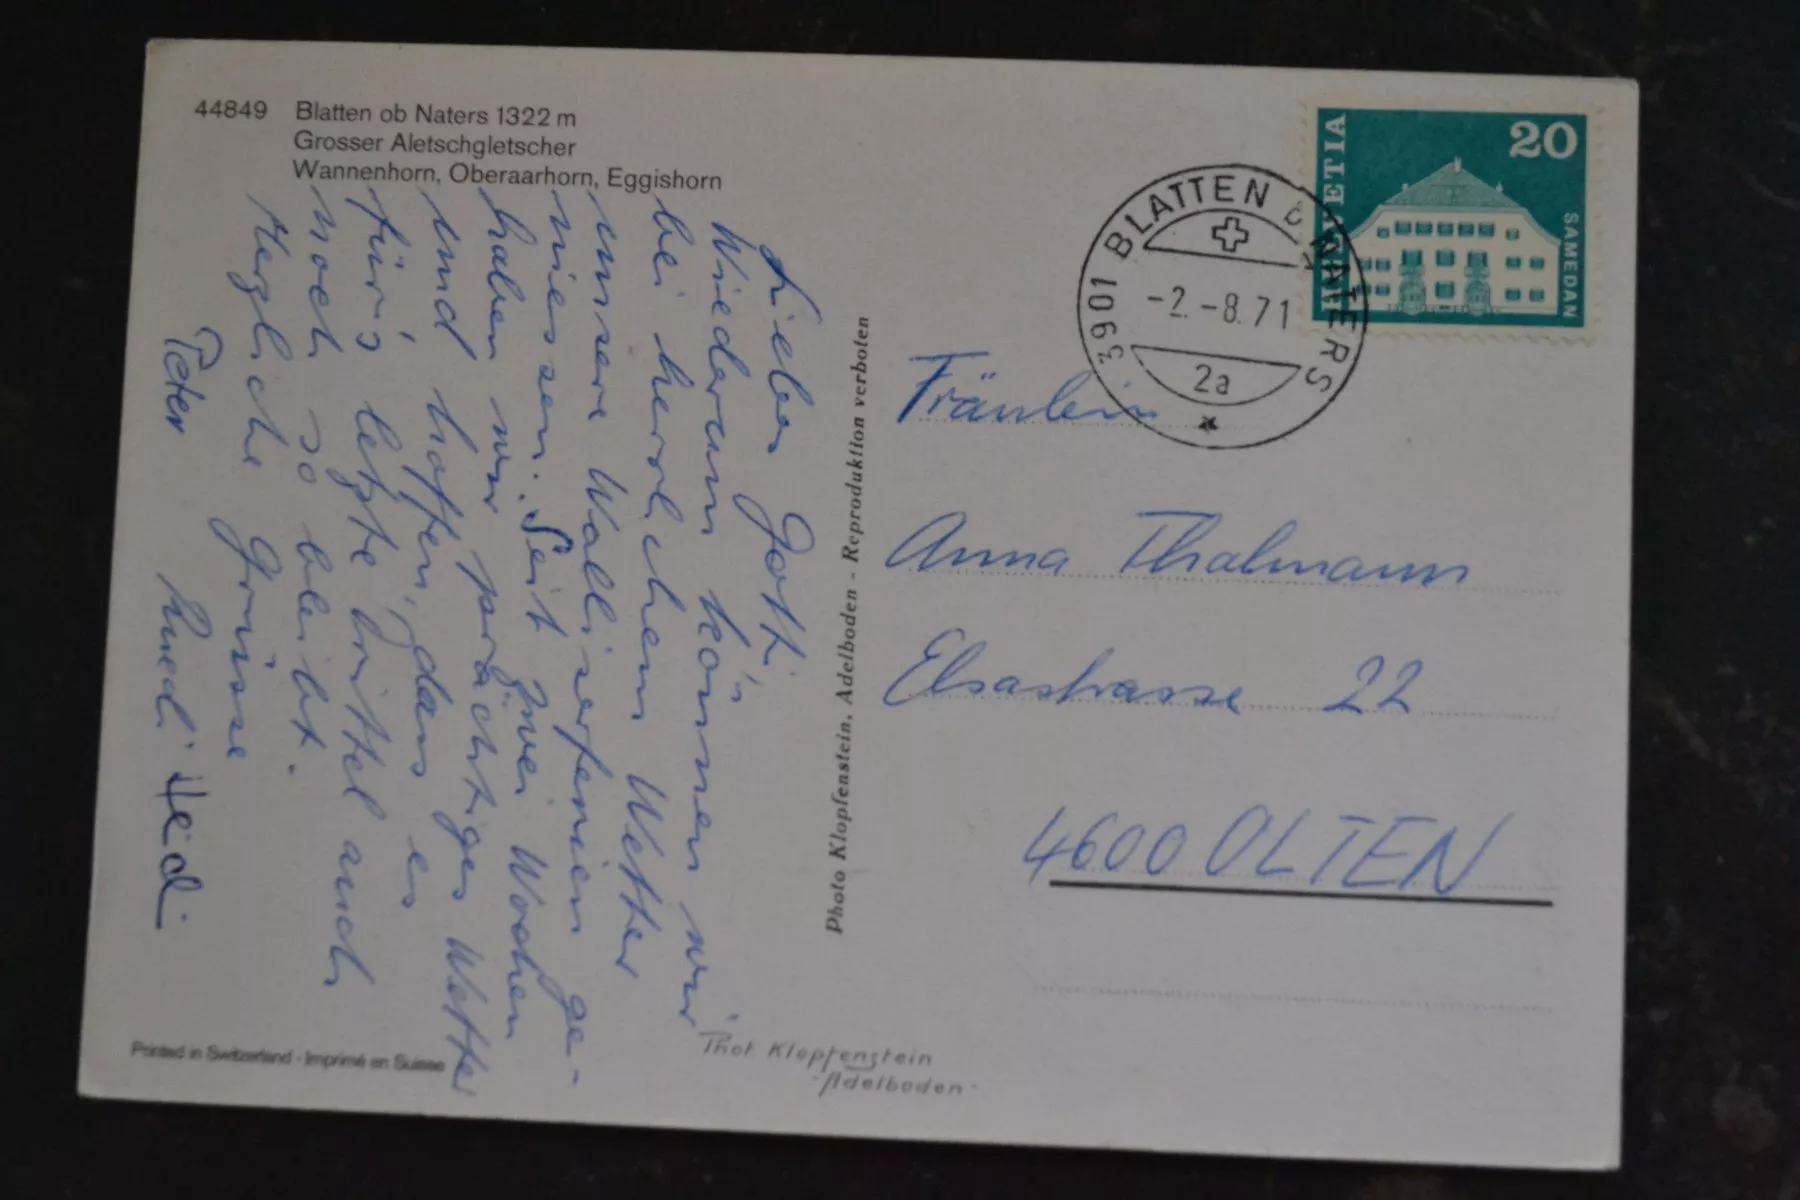 44849 Blatten ob Naters 1322 m
Grosser Aletschgletscher
Wannenhorn, Oberaarhorn, Eggishorn
Wiederum können wir
bei herrlichem Wetter
unsere Walliserferien ge-
niessen. Seit zwei Wochen
haben wir prächtiges Wetter
und hoffen, dass es
für's letzte Drittel auch
noch so bleibt.
Herzliche Grüsse
Peter Ruedi Heidi
Photo Klopfenstein, Adelboden - Reproduktion verboten
HELVETIA
20
SAMEDAN
3901 BLATTEN B. NATERS
-2.-8.71
2a
Fräulein
Anna Thalmann
Elsastrasse 22
4600 OLTEN
Printed in Switzerland - Imprimé en Suisse
Phot Klopfenstein
-Adelboden-